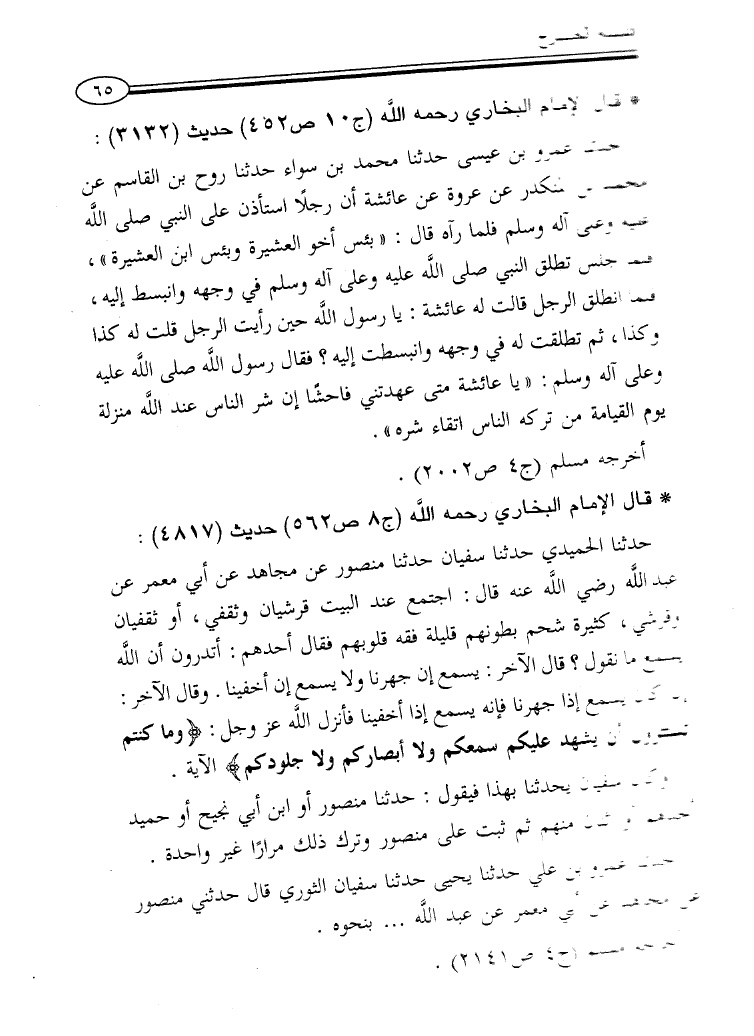 ٦٥
* قال الإمام البخاري رحمه الله (ج١٠ ص٤٥٢) حديث (٣١٣٢) :
عمرو بن عيسى حدثنا محمد بن سواء حدثنا روح بن القاسم عن
محمد بن المنكدر عن عروة عن عائشة أن رجلًا استأذن على النبي صلى الله
عليه وعلى آله وسلم فلما رآه قال : « بئس أخو العشيرة وبئس ابن العشيرة » ،
فلما جلس تطلق النبي صلى الله عليه وعلى آله وسلم في وجهه وانبسط إليه ،
فلما انطلق الرجل قالت له عائشة : يا رسول الله حين رأيت الرجل قلت له كذا
وكذا ، ثم تطلقت له في وجهه وانبسطت إليه ؟ فقال رسول الله صلى الله عليه
وعلى آله وسلم : « يا عائشة متى عهدتني فاحشًا إن شر الناس عند الله منزلة
يوم القيامة من تركه الناس اتقاء شره » .
أخرجه مسلم (ج٤ ص٢٠٠٢) .
* قال الإمام البخاري رحمه الله (ج٨ ص٥٦٢) حديث (٤٨١٧) :
حدثنا الحميدي حدثنا سفيان حدثنا منصور عن مجاهد عن أبي معمر عن
عبد الله رضي الله عنه قال : اجتمع عند البيت قرشيان وثقفي ، أو ثقفيان
وقرشي ، كثيرة شحم بطونهم قليلة فقه قلوبهم فقال أحدهم : أتدرون أن الله
يسمع ما نقول ؟ قال الآخر : يسمع إن جهرنا ولا يسمع إن أخفينا . وقال الآخر :
إن كان يسمع إذا جهرنا فإنه يسمع إذا أخفينا فأنزل الله عز وجل : ﴿ وما كنتم
تستترون أن يشهد عليكم سمعكم ولا أبصاركم ولا جلودكم ﴾ الآية .
وكان سفيان يحدثنا بهذا فيقول : حدثنا منصور أو ابن أبي نجيح أو حميد
أحدهم أو اثنان منهم ثم ثبت على منصور وترك ذلك مرارًا غير واحدة .
حدثنا عمرو بن علي حدثنا يحيى حدثنا سفيان الثوري قال حدثني منصور
عن مجاهد عن أبي معمر عن عبد الله ... بنحوه .
أخرجه مسلم (ج٤ ص٢١٤١) .